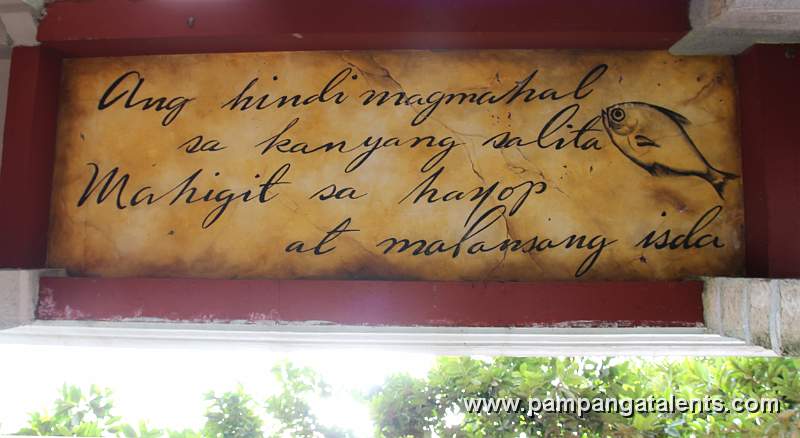 Ang hindi magmahal
sa kanyang salita
Mahigit sa hayop
at malansang isda
www.pampangatalents.com